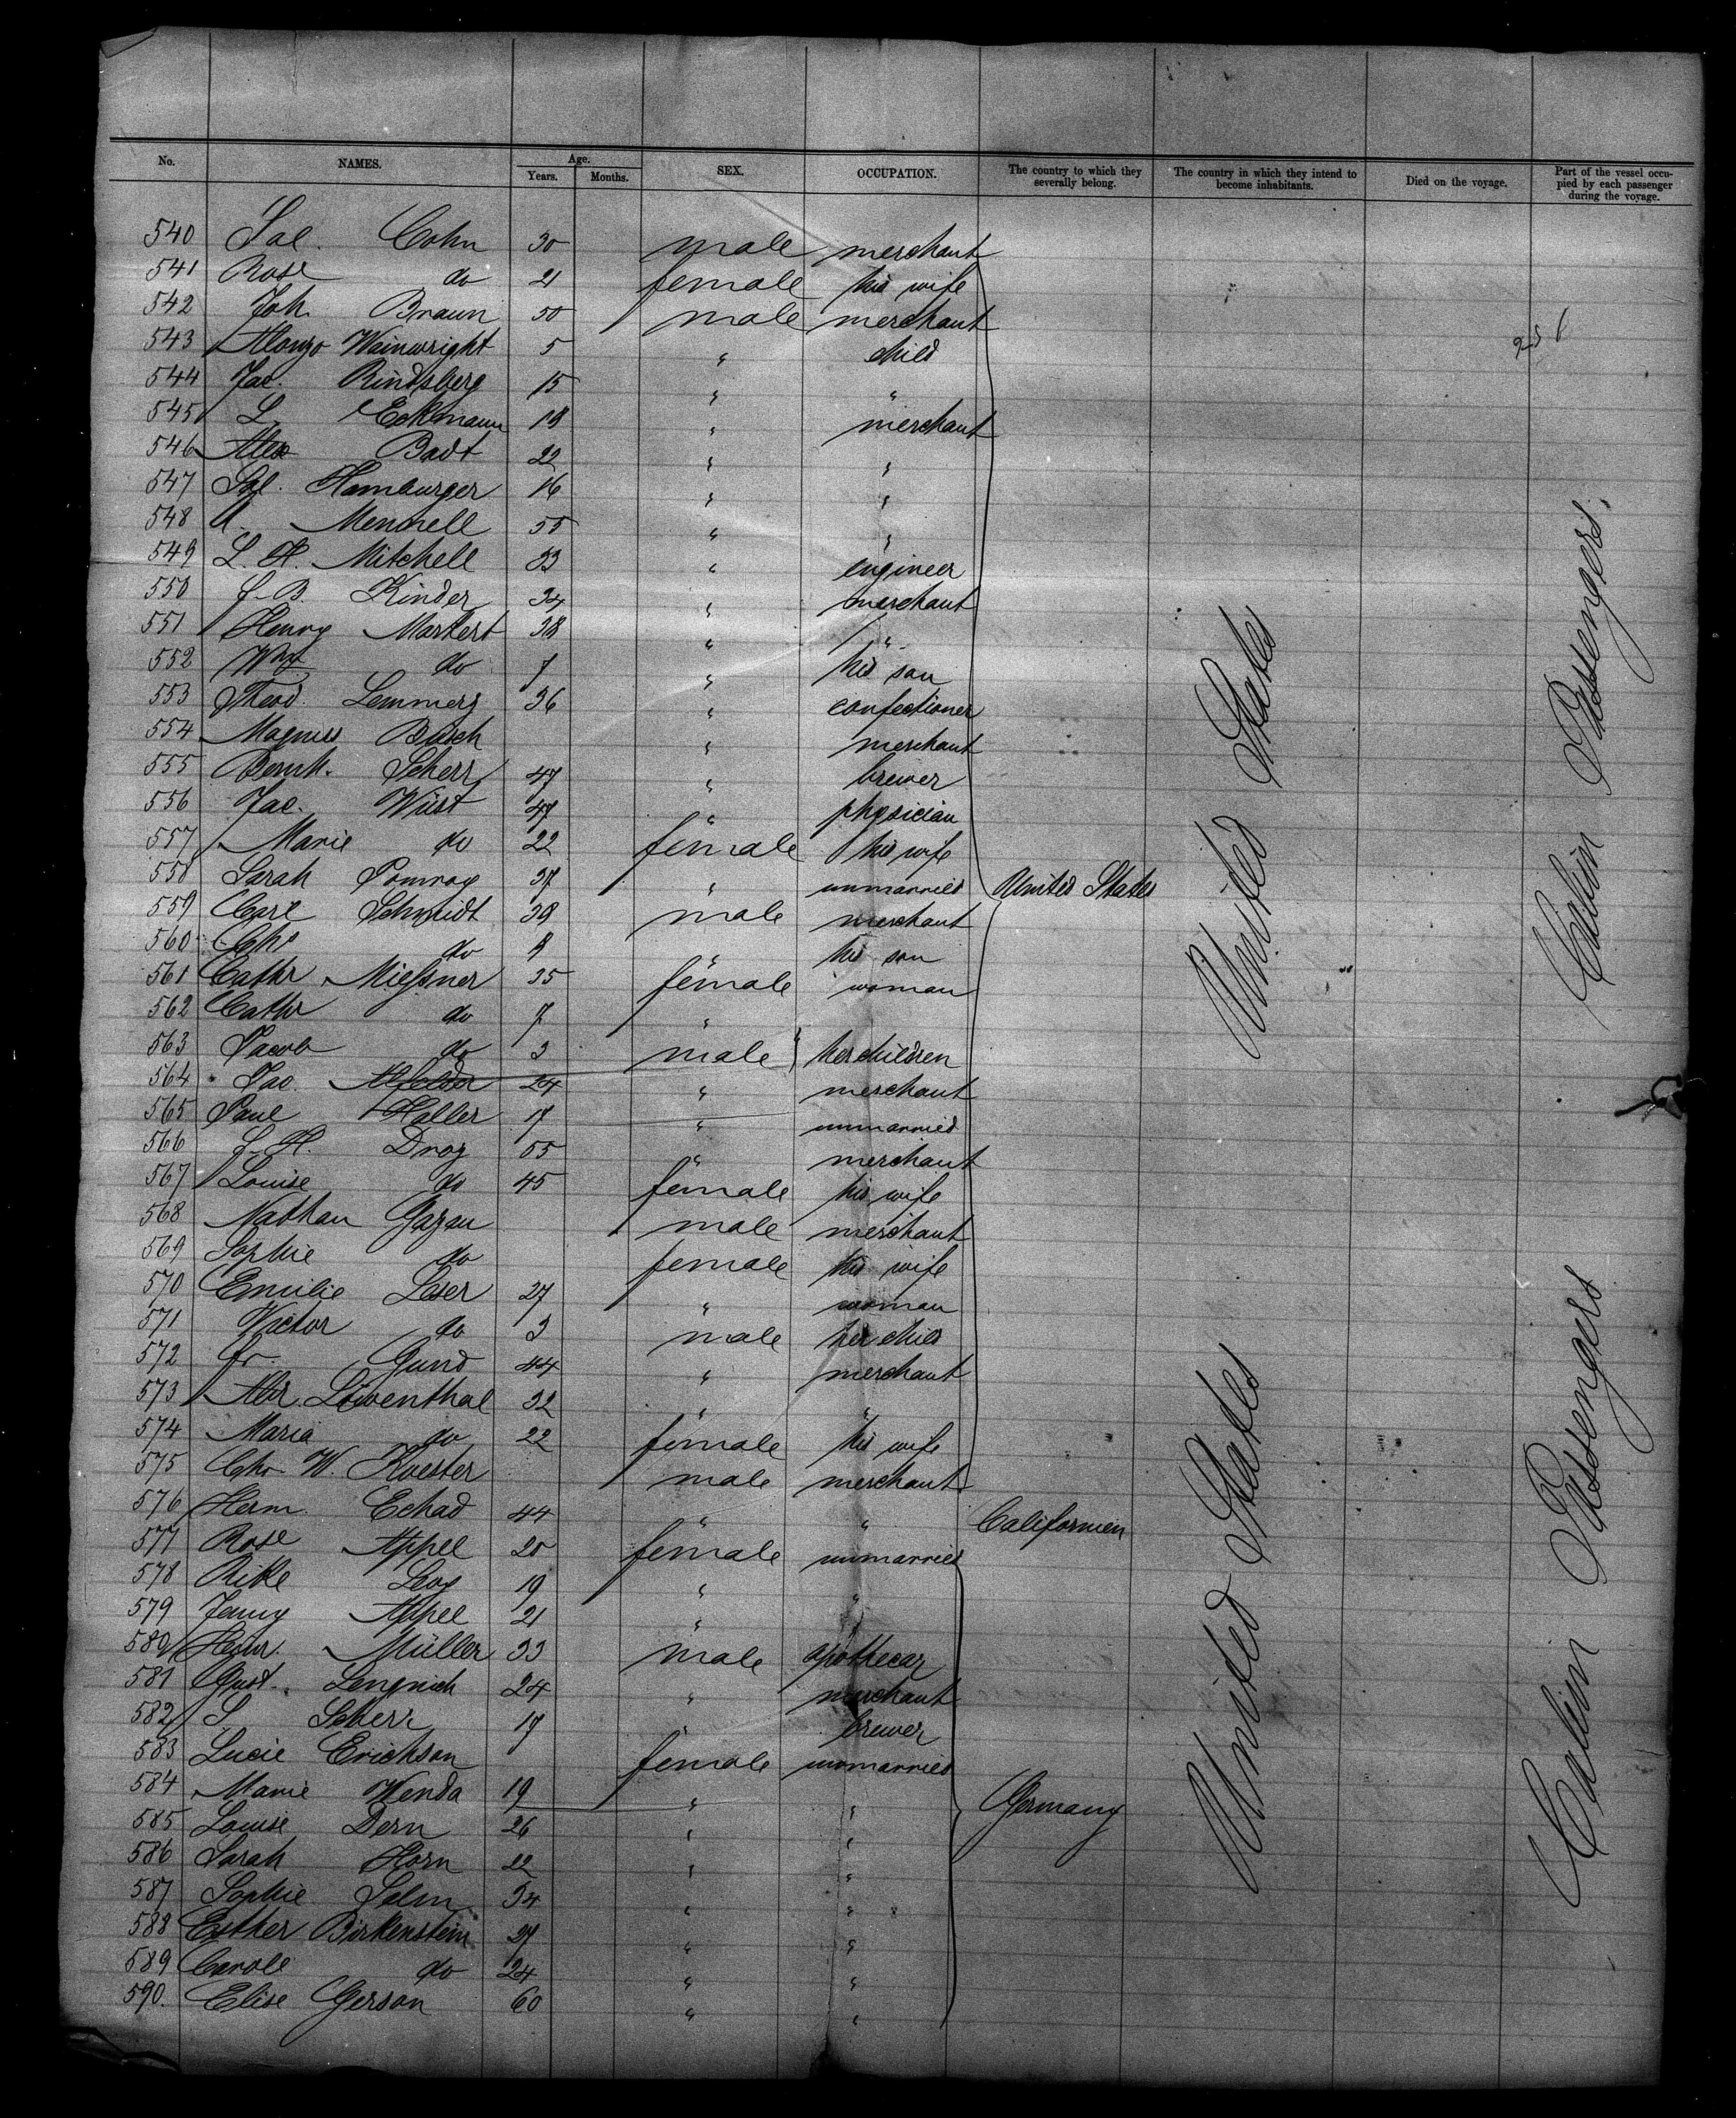 No. NAMES. Age. Years. Months. SEX. OCCUPATION. The country to which they severally belong. The country in which they intend to become inhabitants. Died on the voyage. Part of the vessel occupied by each passenger during the voyage.
540 Sal. Cohn 30 male merchant
541 Rose do 21 female his wife
542 Joh. Braun 50 male merchant
543 Alonzo Wainwright 5 " child
544 Jac. Rindsberg 15 " "
545 L. Eckmann 18 " merchant
546 Alex Badt 22 " "
547 Sal. Hamburger 16 " "
548 Mennell 55 " "
549 L. H. Mitchell 33 " engineer
550 B. Kinder 34 " merchant
551 Henry Markert 38 " "
552 Wm do 7 " his son
553 Theod. Lemmerz 36 " confectioner
554 Magnus Busch " merchant
555 Bernh. Scherr 47 " brewer
556 Jac. Wüst 47 " physician
557 Marie do 22 female his wife
558 Sarah Pomroy 37 " unmarried United States
559 Carl Schmidt 39 male merchant
560 Chs do " his son
561 Cathr Mießner 35 female woman
562 Cathr do 7 "
563 Jacob do 3 male her children
564 Jac. 24 " merchant
565 Paul Haller 17 " unmarried
566 H. Droz 55 " merchant
567 Louise do 45 female his wife
568 Nathan Gazan male merchant
569 Sophie do female his wife
570 Emilie Leser 27 " woman
571 Victor do 3 male her child
572 Fr. Gund 44 " merchant
573 Abr. Löwenthal 32 " "
574 Maria do 22 female his wife
575 Chr W. Koester male merchant
576 Herm. Echad 44 " " Californien
577 Rose Appel 20 female unmarried
578 Rikke Levy 19 " "
579 Jenny Appel 21 " "
580 Heinr. Müller 33 male apothecar
581 Gust. Lengnich 24 " merchant
582 S. Scherr 17 " brewer
583 Lucie Erichson female unmarried
584 Marie Wenda 19 " "
585 Louise Dern 26 " " Germany
586 Sarah Horn 22 " "
587 Sophie Selm 34 " "
588 Esther Birkenstein 27 " "
589 Carole do 24 " "
590. Elise Gerson 60 " "
United States
United States
Cabin Passengers.
Cabin Passengers